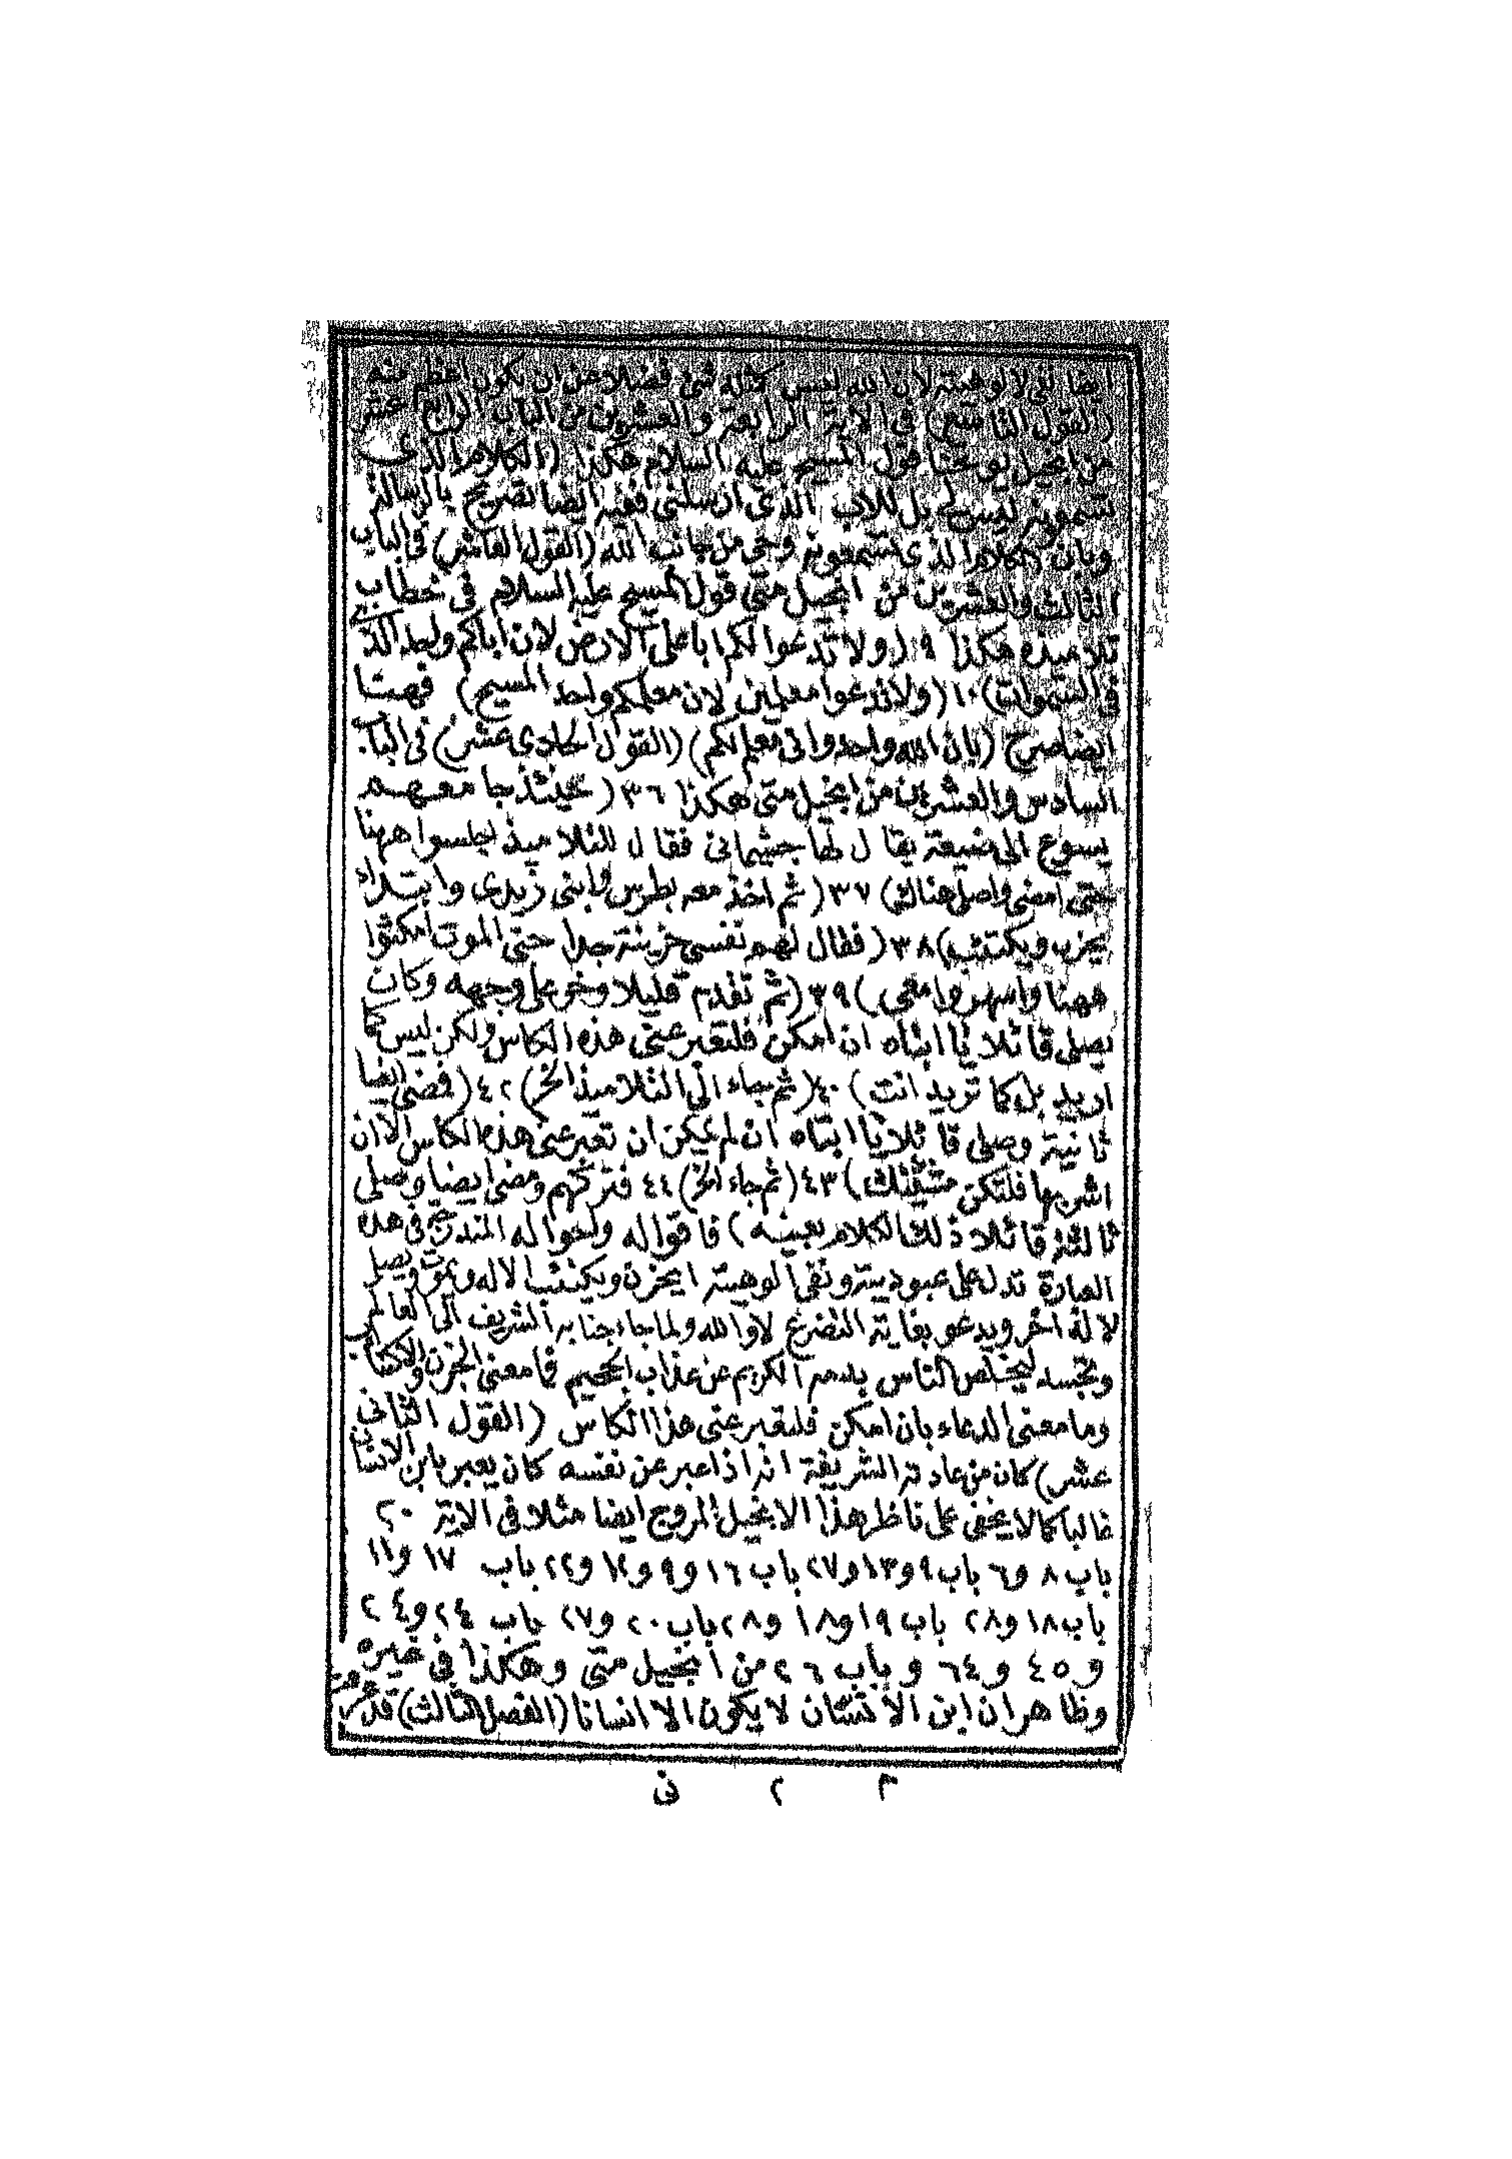 ايضا نفى لالوهيته لان الله ليس كمثله شئ فضلا عن ان يكون اعظم منه
(القول التاسع) فى الاية الرابعة والعشرين من الباب الرابع عشر
من انجيل يوحنا قول المسيح عليه السلام هكذا (الكلام الذى
تسمعونه ليس لى بل للاب الذى ارسلنى ففيه ايضا تصريح بالرسالة
وبان الكلام الذى تسمعونه وحى من جانب الله (القول العاشر) فى الباب
الثالث والعشرين من انجيل متى قول المسيح عليه السلام فى خطاب
تلاميذه هكذا ٩ (ولا تدعوا لكم ابا على الارض لان اباكم واحد الذى
فى السموات) ١٠ (ولا تدعوا معلمين لان معلمكم واحد المسيح) فهنا
ايضا صرح (بان الله واحد وانى معلم لكم) (القول الحادى عشر) فى الباب
السادس والعشرين من انجيل متى هكذا ٣٦ (حينئذ جا معهم
يسوع الى ضيعة يقال لها جشيمانى فقال للتلاميذ اجلسوا ههنا
حتى امضى واصلى هناك) ٣٧ (ثم اخذ معه بطرس وابنى زبدى وابتداء
يحزن ويكتئب) ٣٨ (فقال لهم نفسى حزينة جدا حتى الموت امكثوا
ههنا واسهروا معى) ٣٩ (ثم تقدم قليلا وخر على وجهه وكان
يصلى قائلا يا ابتاه ان امكن فلتعبر عنى هذه الكاس ولكن ليس كما
اريد بل كما تريد انت) ٤٠ (ثم جاء الى التلاميذ الخ) ٤٢ (فمضى ايضا
ثانية وصلى قائلا يا ابتاه ان لم يمكن ان تعبر عنى هذه الكاس الا ان
اشربها فلتكن مشيئتك) ٤٣ (ثم جاء الخ) ٤٤ فتركهم ومضى ايضا وصلى
ثالثة قائلا ذلك الكلام بعينه) فاقواله واحواله المندرجة فى هذه
العبارة تدل على عبوديته ونفى الوهيته ايحزن ويكتئب الاله ويموت ويصلى
لالة اخر ويدعو بغاية التضرع لا والله ولما جاء جنابه الشريف الى العالم
وتجسد ليخلص الناس بدمه الكريم عن عذاب الجحيم فما معنى الحزن والاكتئاب
وما معنى الدعاء بان امكن فلتعبر عنى هذا الكاس (القول الثانى
عشر) كان من عادته الشريفة انه اذا عبر عن نفسه كان يعبر بابن الانسان
غالبا كما لا يخفى على ناظر هذا الانجيل المروج ايضا مثلا فى الاية ٢٠
باب ٨ و٦ باب ٩ و١٣ و٢٧ باب ١٦ و٩ و١٢ و٢٢ باب ١٧ و١١
باب ١٨ و٢٨ باب ١٩ و١٨ و٢٨ باب ٢٠ و٢٧ باب ٢٤ و٢٤
و٤٥ و٦٤ وباب ٢٦ من انجيل متى وهكذا فى غيره
وظاهر ان ابن الانسان لا يكون الا انسانا (الفصل الثالث) قد عرفت
م ٢ نى